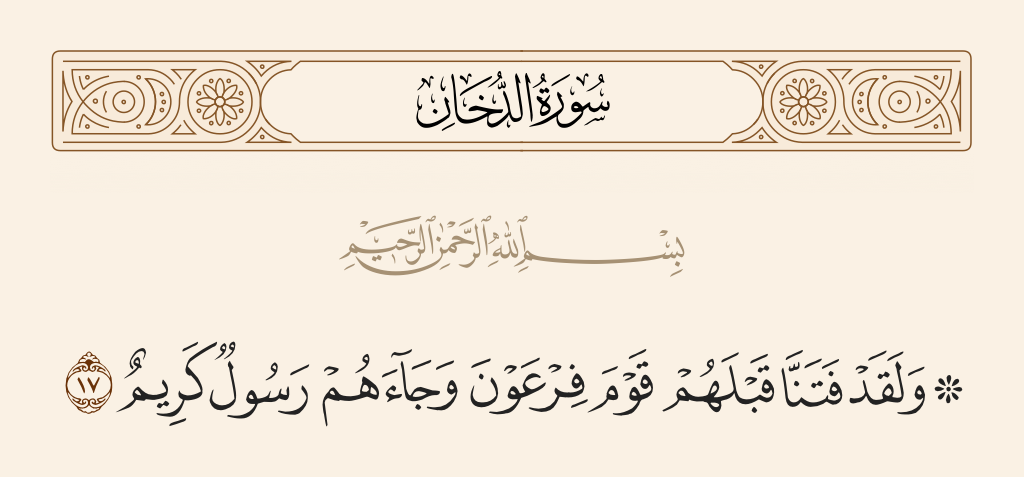 سُورَةُ الدُّخَانِ
بِسْمِ ٱللَّهِ ٱلرَّحْمَٰنِ ٱلرَّحِيمِ
۞ وَلَقَدْ فَتَنَّا قَبْلَهُمْ قَوْمَ فِرْعَوْنَ وَجَآءَهُمْ رَسُولٌ كَرِيمٌ ١٧